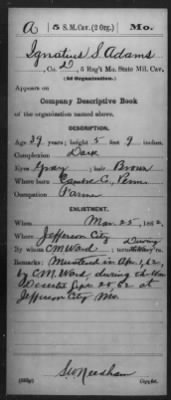 A | 5 S.M. Cav. (2 Org.) | Mo.
Ignatius S. Adams
, Co. D, 5 Reg't Mo. State Mil. Cav.
(2d Organization.)
Appears on
Company Descriptive Book
of the organization named above.
DESCRIPTION.
Age 39 years; height 5 feet 9 inches.
Complexion Dark
Eyes Gray; hair Brown
Where born Centre Co., Penn.
Occupation Farmer
ENLISTMENT.
When Mar. 25, 1862.
Where Jefferson City
By whom C M Ward; term During
Remarks: Mustered in Apr. 1, 62,
by C M. Ward, during the War
Deserted Sept. 20, 62 at
Jefferson City Mo.
Copyist.